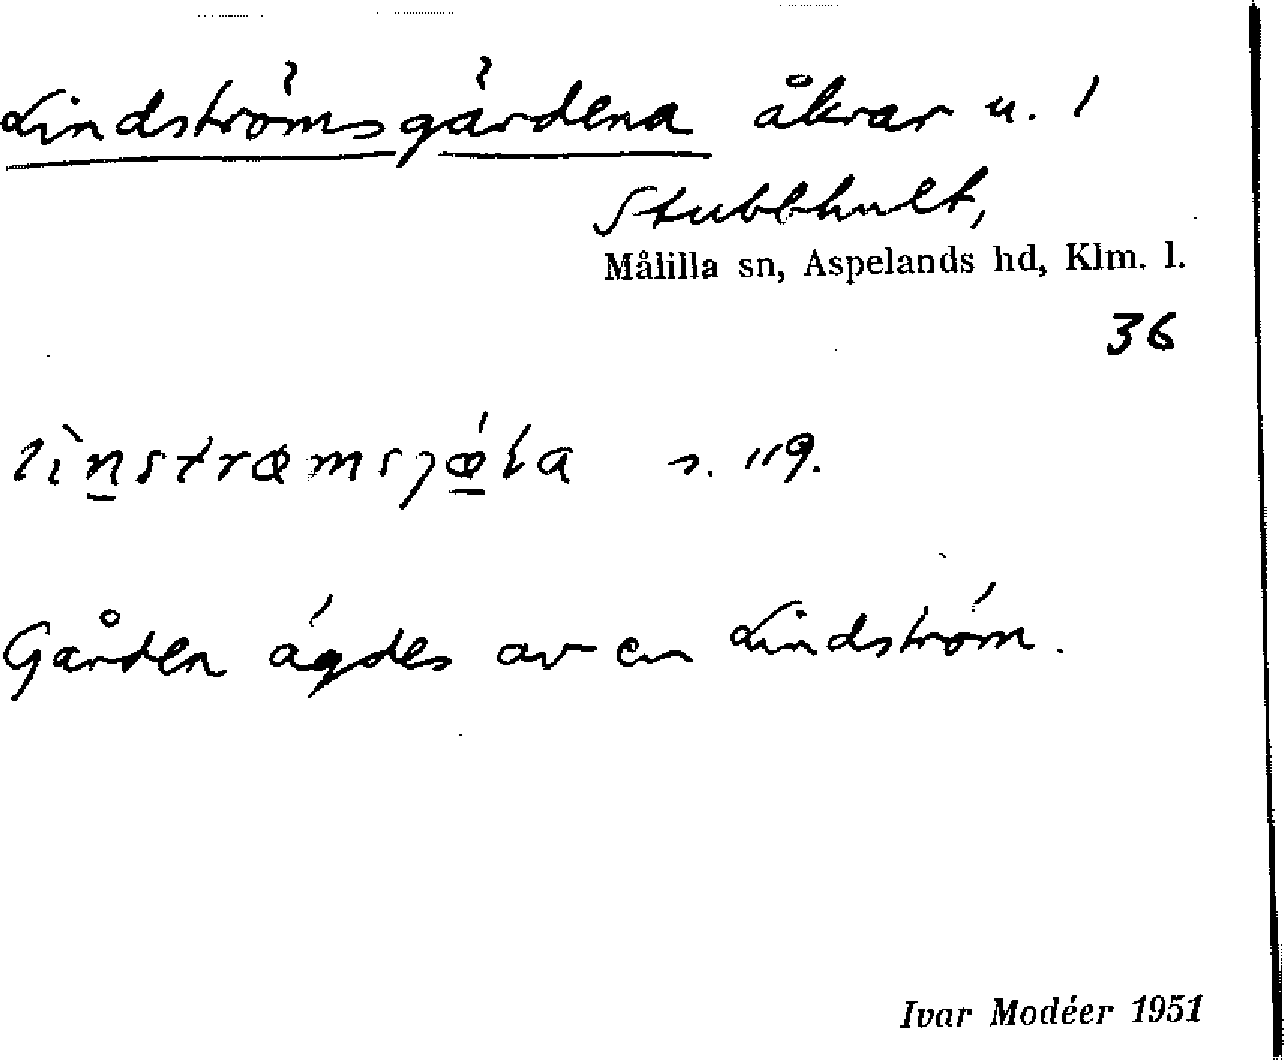 Lindströmsgärdena åkrar u. 1
Stubbhult,
Målilla sn, Aspelands hd, Klm. l.
36
s. 119.
Gården ägdes av en Lindström.
Ivar Modéer 1951